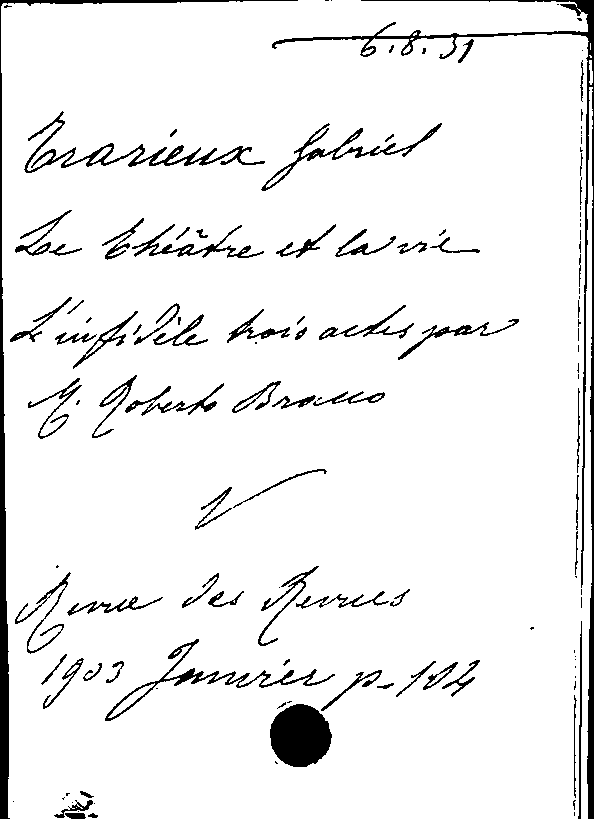 6.8.31
Trarieux Gabriel
Le théâtre et la vie
L'infidèle trois actes par
M. Roberto Bracco
Revue des Revues
1903 Janvier p. 104